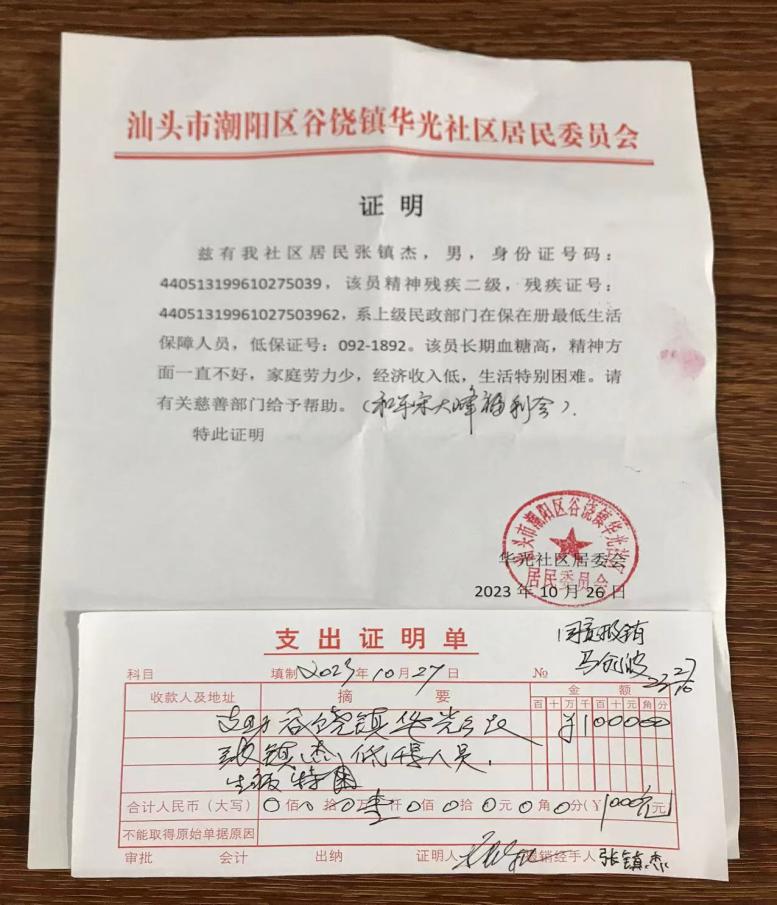 汕头市潮阳区谷饶镇华光社区居民委员会
证明
兹有我社区居民张镇杰，男，身份证号码：
440513199610275039，该员精神残疾二级，残疾证号：
44051319961027503962，系上级民政部门在保在册最低生活
保障人员，低保证号：092-1892。该员长期血糖高，精神方
面一直不好，家庭劳力少，经济收入低，生活特别困难。请
有关慈善部门给予帮助。（和平宋大峰福利会）.
特此证明
汕头市潮阳区谷饶镇华光社区
居民委员会
华光社区居委会
2023 年 10 月 26 日
支出证明单
同意报销
科目 填制2023年10月27日 №
马
23 27/10
收款人及地址 摘要 金额
百十万千百十元角分
谷饶镇华光
¥100000
镇杰，低保人员，
生活特困
合计人民币（大写）0佰0拾0万壹仟0佰0拾0元0角0分(¥1000元元)
不能取得原始单据原因
审批 会计 出纳 证明人 报销经手人 张镇杰